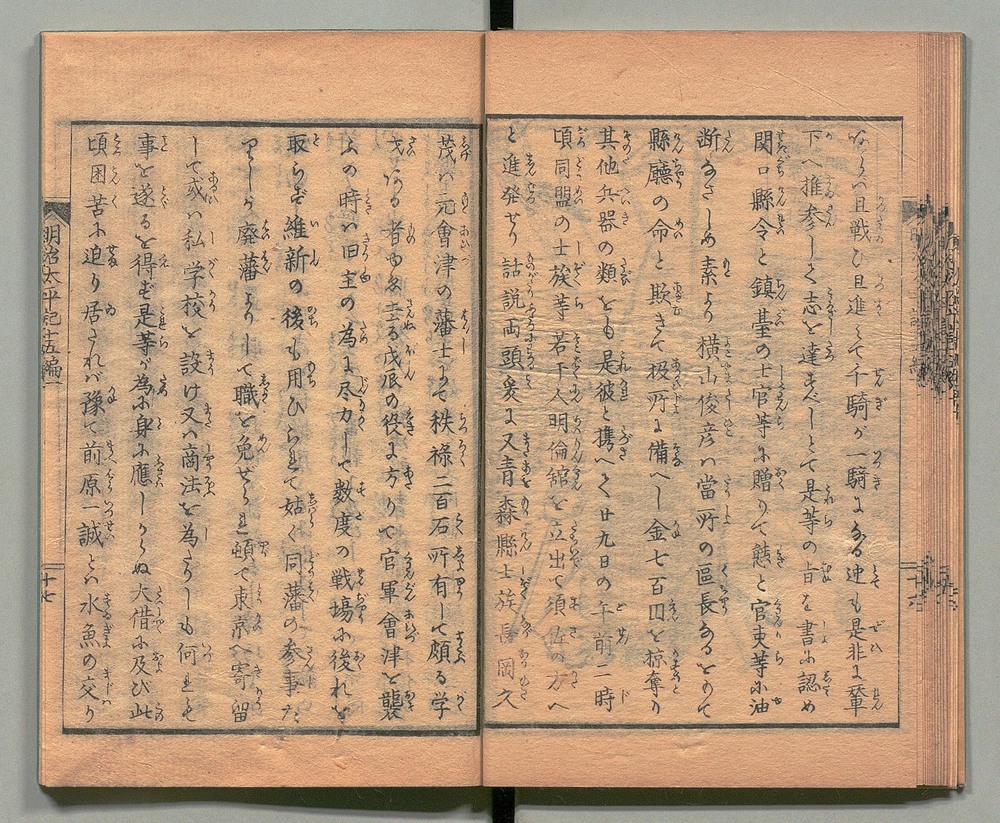 且戦ひ且進みて千騎が一騎になる迚も是非に輦
下へ推参して志を達すべしとて是等の旨を書に認め
関口縣令と鎮臺の士官等に贈りて態と官吏等に油
断なさしめ素より横山俊彦ハ當所の區長なるをもて
縣廳の命と欺きて扱所に備へし金七百円を掠奪り
其他兵器の類をも是彼と携へて廿九日の午前二時
頃同盟の士族等若干人明倫舘を立出て須佐の方へ
と進発せり 話説両頭爰に又青森縣士族長岡久
茂ハ元會津の藩士にて秩禄二百石所有して頗る学
才ある者由名立る戊辰の役に方りて官軍會津を襲
ふの時ハ旧主の為に尽力して数度の戦場に後れを
取らず維新の後も用ひられて姑く同藩の参事た
りしが廃藩よりして職を免ぜられ頓て東京へ寄留
して或ハ私学校を設け又ハ商法を為たりしも何れも
事を遂るを得ず是等が為に身に應じからぬ大借に及び此
頃困苦に迫り居されバ豫て前原一誠とハ水魚の交り
明治太平記十五編一
十七